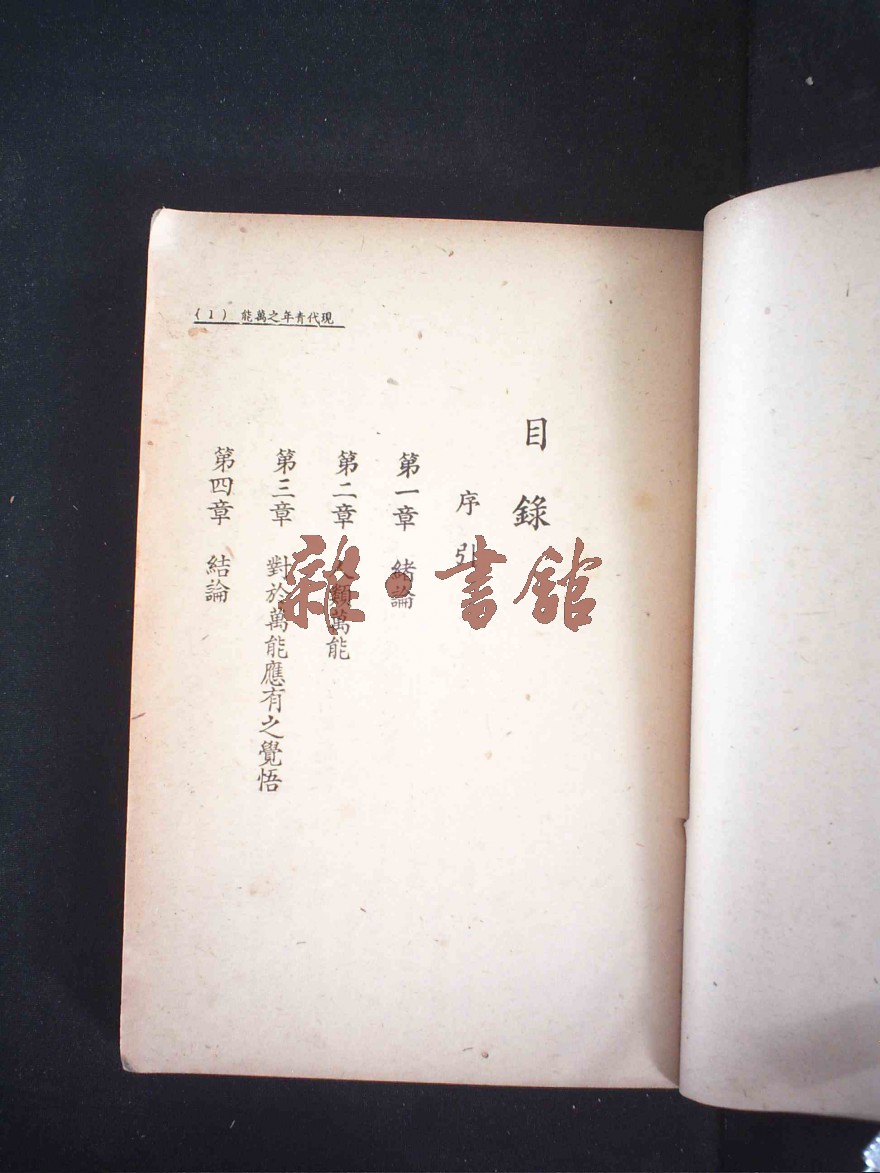 現代青年之萬能 (1)
目錄
序引
第一章 緒論
第二章 人類萬能
第三章 對於萬能應有之覺悟
第四章 結論
雜·書館